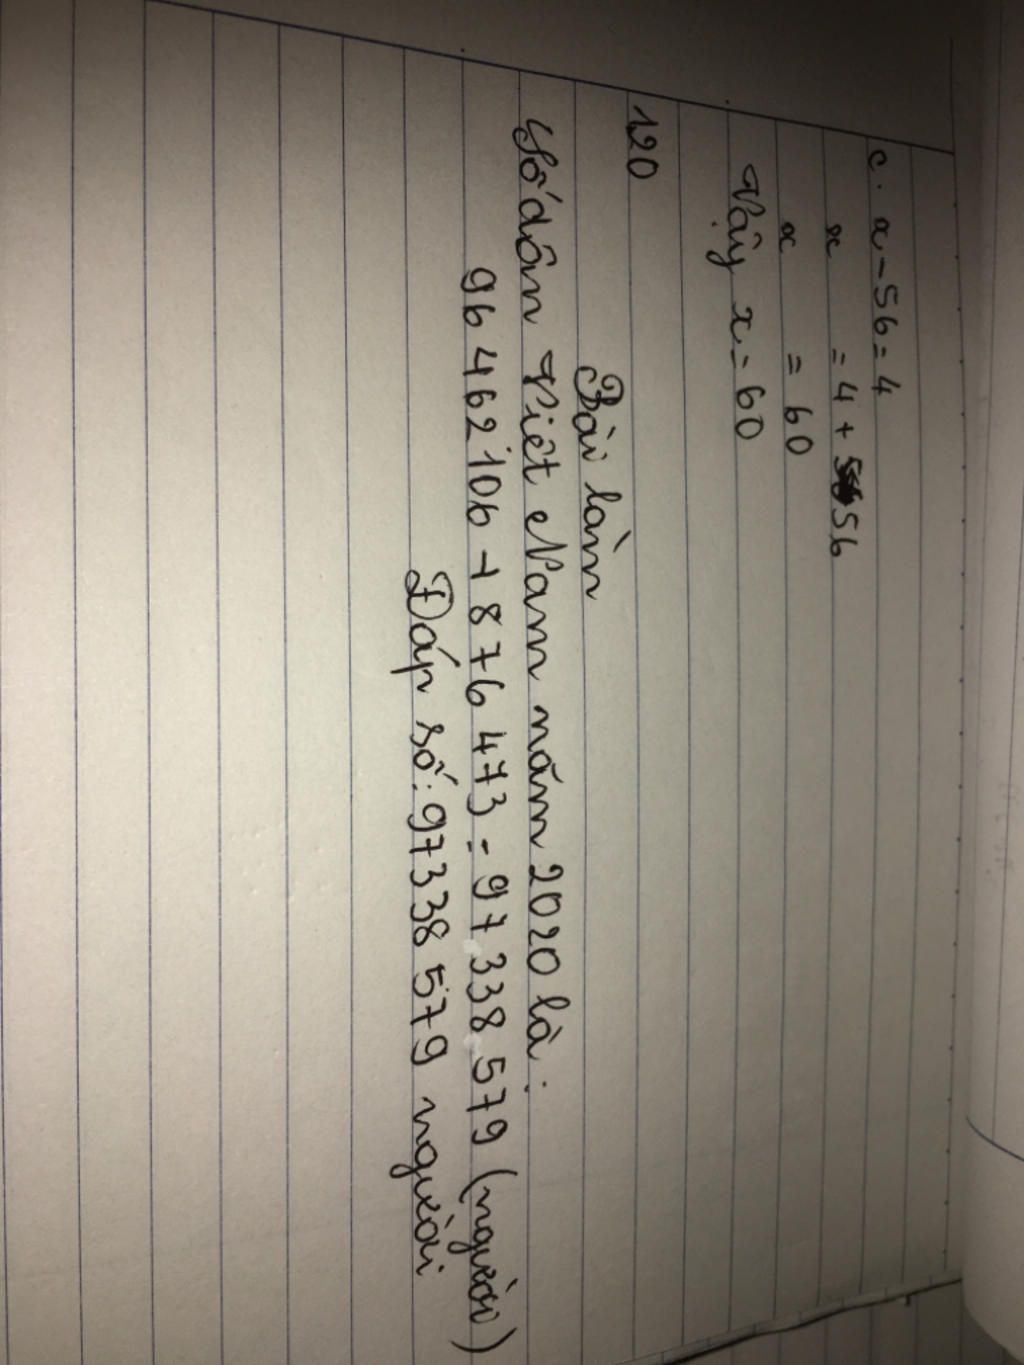 c. x - 56 = 4
x = 4 + 56
x = 60
Vậy x = 60
120
Bài làm
Số dân Việt Nam năm 2020 là:
96 462 106 + 876 473 = 97 338 579 (người)
Đáp số: 97338 579 người